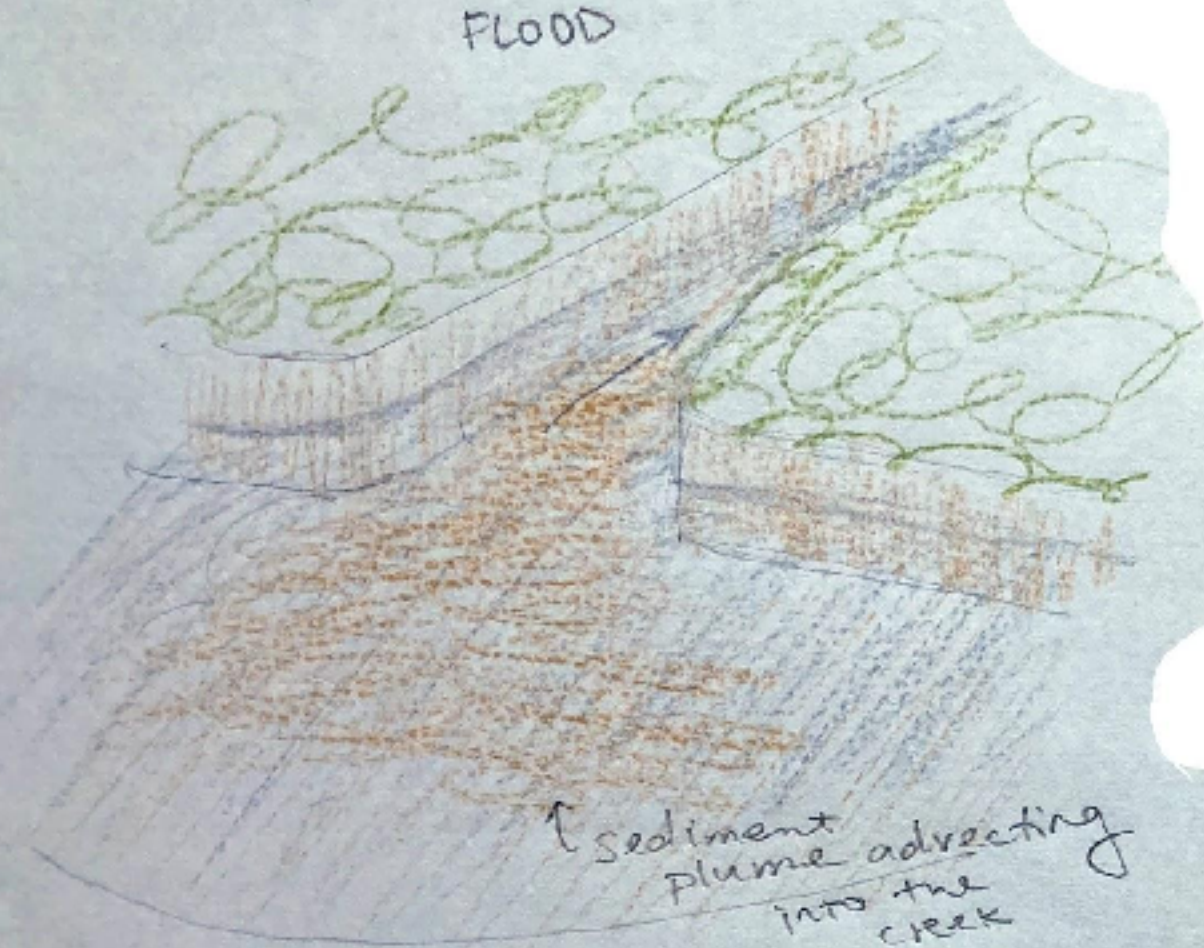 FLOOD
↑ sediment
plume advecting
into the
creek